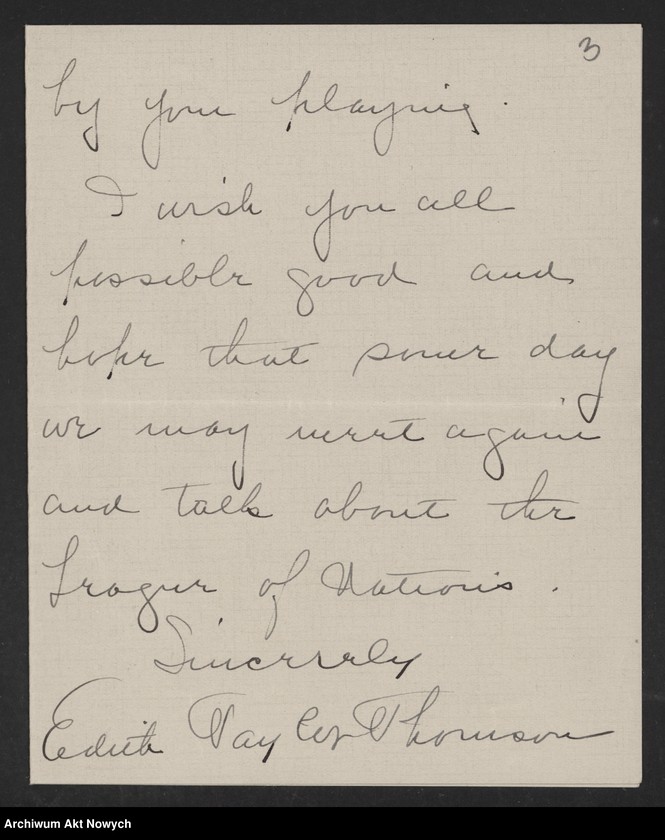 3
by your playing.
I wish you all
possible good and
hope that some day
we may meet again
and talk about the
League of Nations.
Sincerely
Edith Taylor Thomson
Archiwum Akt Nowych